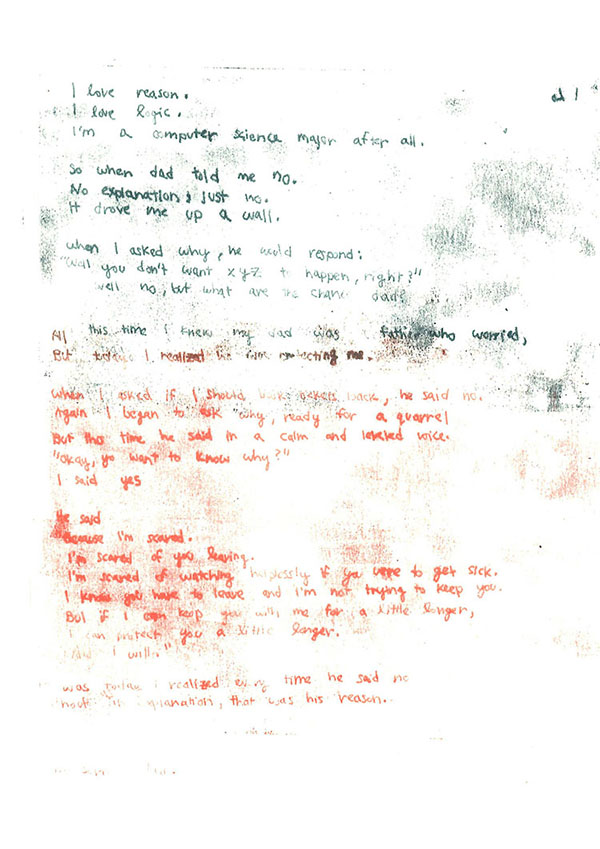 I love reason.
I love logic.
I'm a computer science major after all.
So when dad told me no.
No explanation, just no.
It drove me up a wall.
when I asked why, he would respond:
"Well you don't want xyz to happen, right?"
well no, but what are the dad?
All this time I knew my dad was a father who worried,
But I realized he was protecting me.
When I asked if I should back, he said no.
Again I began to ask "why, ready for a quarrel
But this time he said in a calm and leveled voice.
"Okay, yo want to know why?"
I said yes
He said
"Because I'm scared.
I'm scared of you leaving.
I'm scared of watching helplessly if you were to get sick.
I know you have to leave and I'm not trying to keep you.
But if I can keep you with me for a little longer,
I can protect you a little longer.
And I will."
was today I realized every time he said no
explanation, that was his reason.